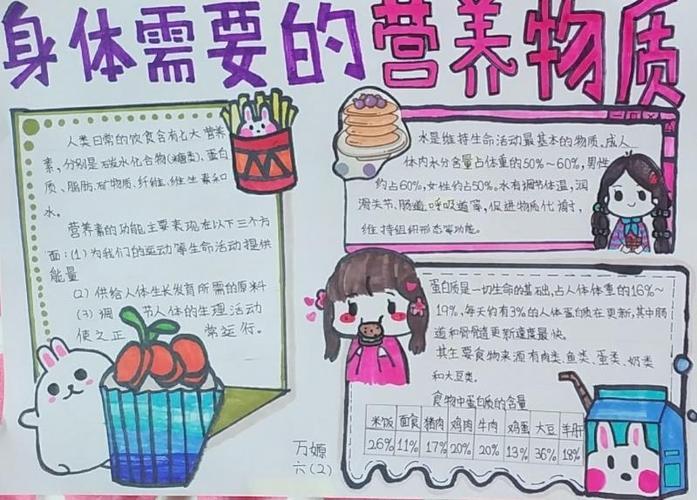 身体需要的营养物质
人类日常的饮食含有七大营养
素,分别是碳水化合物(糖类)、蛋白
质、脂肪、矿物质、纤维、维生素和
水。
营养素的功能主要表现在以下三个方
面:(1)为我们的运动等生命活动提供
能量
(2)供给人体生长发育所需的原料
(3)调节人体的生理活动
使之正常运行。
水是维持生命活动最基本的物质,成人
体内水分含量占体重的50%~60%,男性
约占60%,女性约占50%。水有调节体温,润
滑关节、肠道、呼吸道等,促进物质代谢,
维持组织形态等功能。
蛋白质是一切生命的基础,占人体体重的16%~
19%,每天约有3%的人体蛋白质在更新,其中肠
道和骨骨道更新速度最快。
其主要食物来源有肉类、鱼类、蛋类、奶类
和大豆类。
食物中蛋白质的含量
米饭 面食 猪肉 鸡肉 牛肉 鸡蛋 大豆 羊肝
26% 11% 17% 20% 20% 13% 36% 18%
万嫄
六(2)